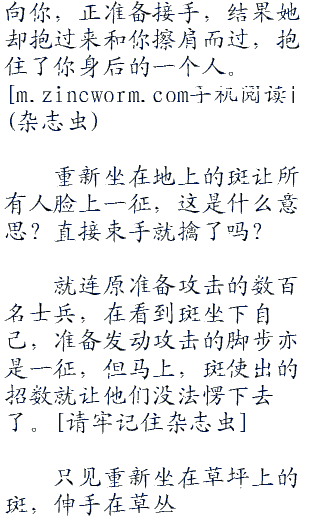 向你，正准备接手，结果她
却抱过来和你擦肩而过，抱
住了你身后的一个人。
[m.zincworm.com手机阅读]
(杂志虫)
重新坐在地上的斑让所
有人脸上一征，这是什么意
思？直接束手就擒了吗？
就连原准备攻击的数百
名士兵，在看到斑坐下自
己，准备发动攻击的脚步亦
是一征，但马上，斑使出的
招数就让他们没法愣下去
了。[请牢记住杂志虫]
只见重新坐在草坪上的
斑，伸手在草丛